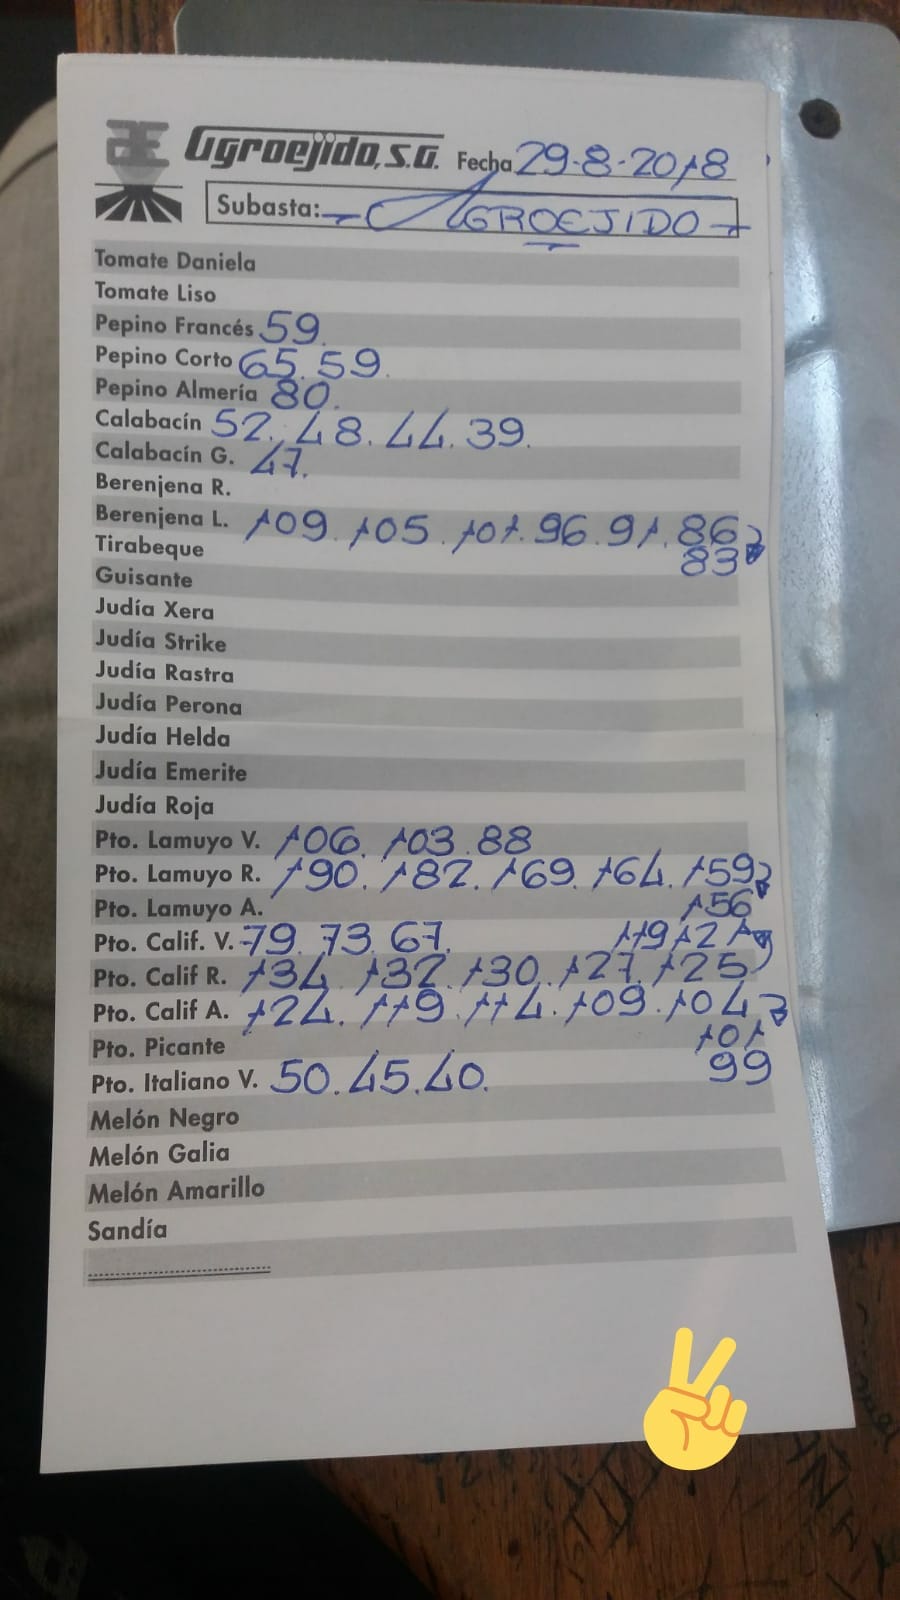 Agroejido, S.A. Fecha 29-8-2018
Subasta: AGROEJIDO
Tomate Daniela
Tomate Liso
Pepino Francés 59.
Pepino Corto 65. 59.
Pepino Almería 80.
Calabacín 52. 48. 44. 39.
Calabacín G. 47.
Berenjena R.
Berenjena L. 109. 105. 101. 96. 91. 86
Tirabeque 83
Guisante
Judía Xera
Judía Strike
Judía Rastra
Judía Perona
Judía Helda
Judía Emerite
Judía Roja
Pto. Lamuyo V. 106. 103. 88
Pto. Lamuyo R. 190. 182. 169. 164. 159
Pto. Lamuyo A. 156
Pto. Calif. V. 79. 73. 67. 119 121
Pto. Calif R. 134. 132. 130. 127. 125
Pto. Calif A. 124. 119. 114. 109. 104
Pto. Picante 101
Pto. Italiano V. 50. 45. 40. 99
Melón Negro
Melón Galia
Melón Amarillo
Sandía